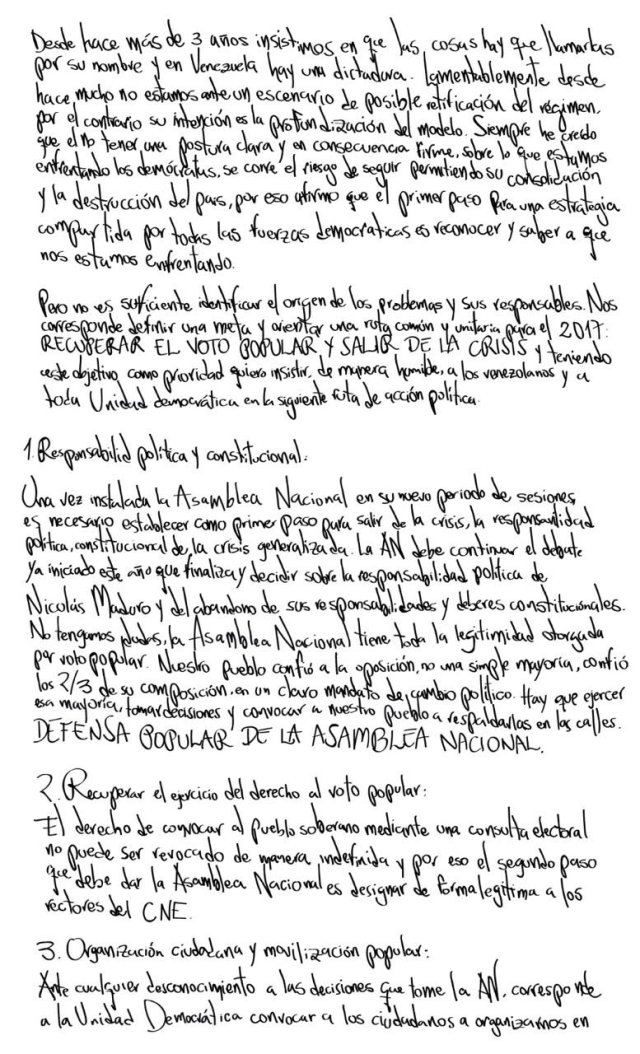 Desde hace más de 3 años insistimos en que las cosas hay que llamarlas
por su nombre y en Venezuela hay una dictadura. Lamentablemente desde
hace mucho no estamos ante un escenario de posible retificación del régimen,
por el contrario su intención es la profundización del modelo. Siempre he creído
que el no tener una postura clara y en consecuencia firme, sobre lo que estamos
enfrentando los demócratas, se corre el riesgo de seguir permitiendo su consolidación
y la destrucción del país, por eso afirmo que el primer paso para una estrategia
compartida por todas las fuerzas democraticas es reconocer y saber a que
nos estamos enfrentando.
Pero no es suficiente identificar el origen de los problemas y sus responsables. Nos
corresponde definir una meta y orientar una ruta común y unitaria para el 2017:
RECUPERAR EL VOTO POPULAR Y SALIR DE LA CRISIS y teniendo
este objetivo como prioridad quiero insistir, de manera humilde, a los venezolanos y a
toda Unidad democrática en la siguiente ruta de acción política.
1. Responsabilid política y constitucional:
Una vez instalada la Asamblea Nacional en su nuevo periodo de sesiones,
es necesario establecer como primer paso para salir de la crisis, la responsavilidad
política, constitucional de la crisis generalizada. La AN debe continuar el debate
ya iniciado este año que finaliza y decidir sobre la responsabilidad política de
Nicolás Maduro y del abandono de sus responsabilidades y deberes constitucionales.
No tengamos dudas, la Asamblea Nacional tiene toda la legitimidad otorgada
por voto popular. Nuestro Pueblo confió a la oposición, no una simple mayoría, confió
los 2/3 de su composición, en un claro mandato de cambio político. Hay que ejercer
esa mayoría, tomar decisiones y convocar a nuestro pueblo a respaldarlas en las calles.
DEFENSA POPULAR DE LA ASAMBLEA NACIONAL.
2. Recuperar el ejercicio del derecho al voto popular:
El derecho de convocar al pueblo soberano mediante una consulta electoral
no puede ser revocado de manera indefinida y por eso el segundo paso
que debe dar la Asamblea Nacional es designar de forma legítima a los
rectores del CNE.
3. Organización ciudadana y movilización popular:
Ante cualquier desconocimiento a las decisiones que tome la AN, corresponde
a la Unidad Democrática convocar a los ciudadanos a organizarnos en